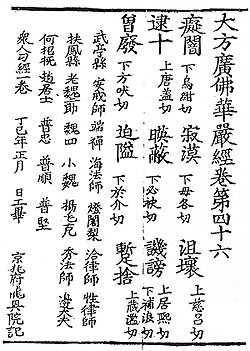 大方廣佛華嚴經卷第四十六
癡闇 下烏紺切 寂漠 下毋各切 沮壞 上慈呂切
逮十 上唐蓋切 暎蔽 下必袂切 譏謗 上居熙切 下補浪切
曽廢 下方吠切 迫隘 下於介切 蹔捨 上藏濫切
武亭縣 戒師 端禪 海法師 燈闍梨 洽律師 性律師
扶風縣 老魏三郎 魏四 小魏 秀法師 邊大夫
何招撫 趙居士 普忠 普順 普堅
衆人勾經一卷 丁巳年正月 日工畢 京兆府龍興院記